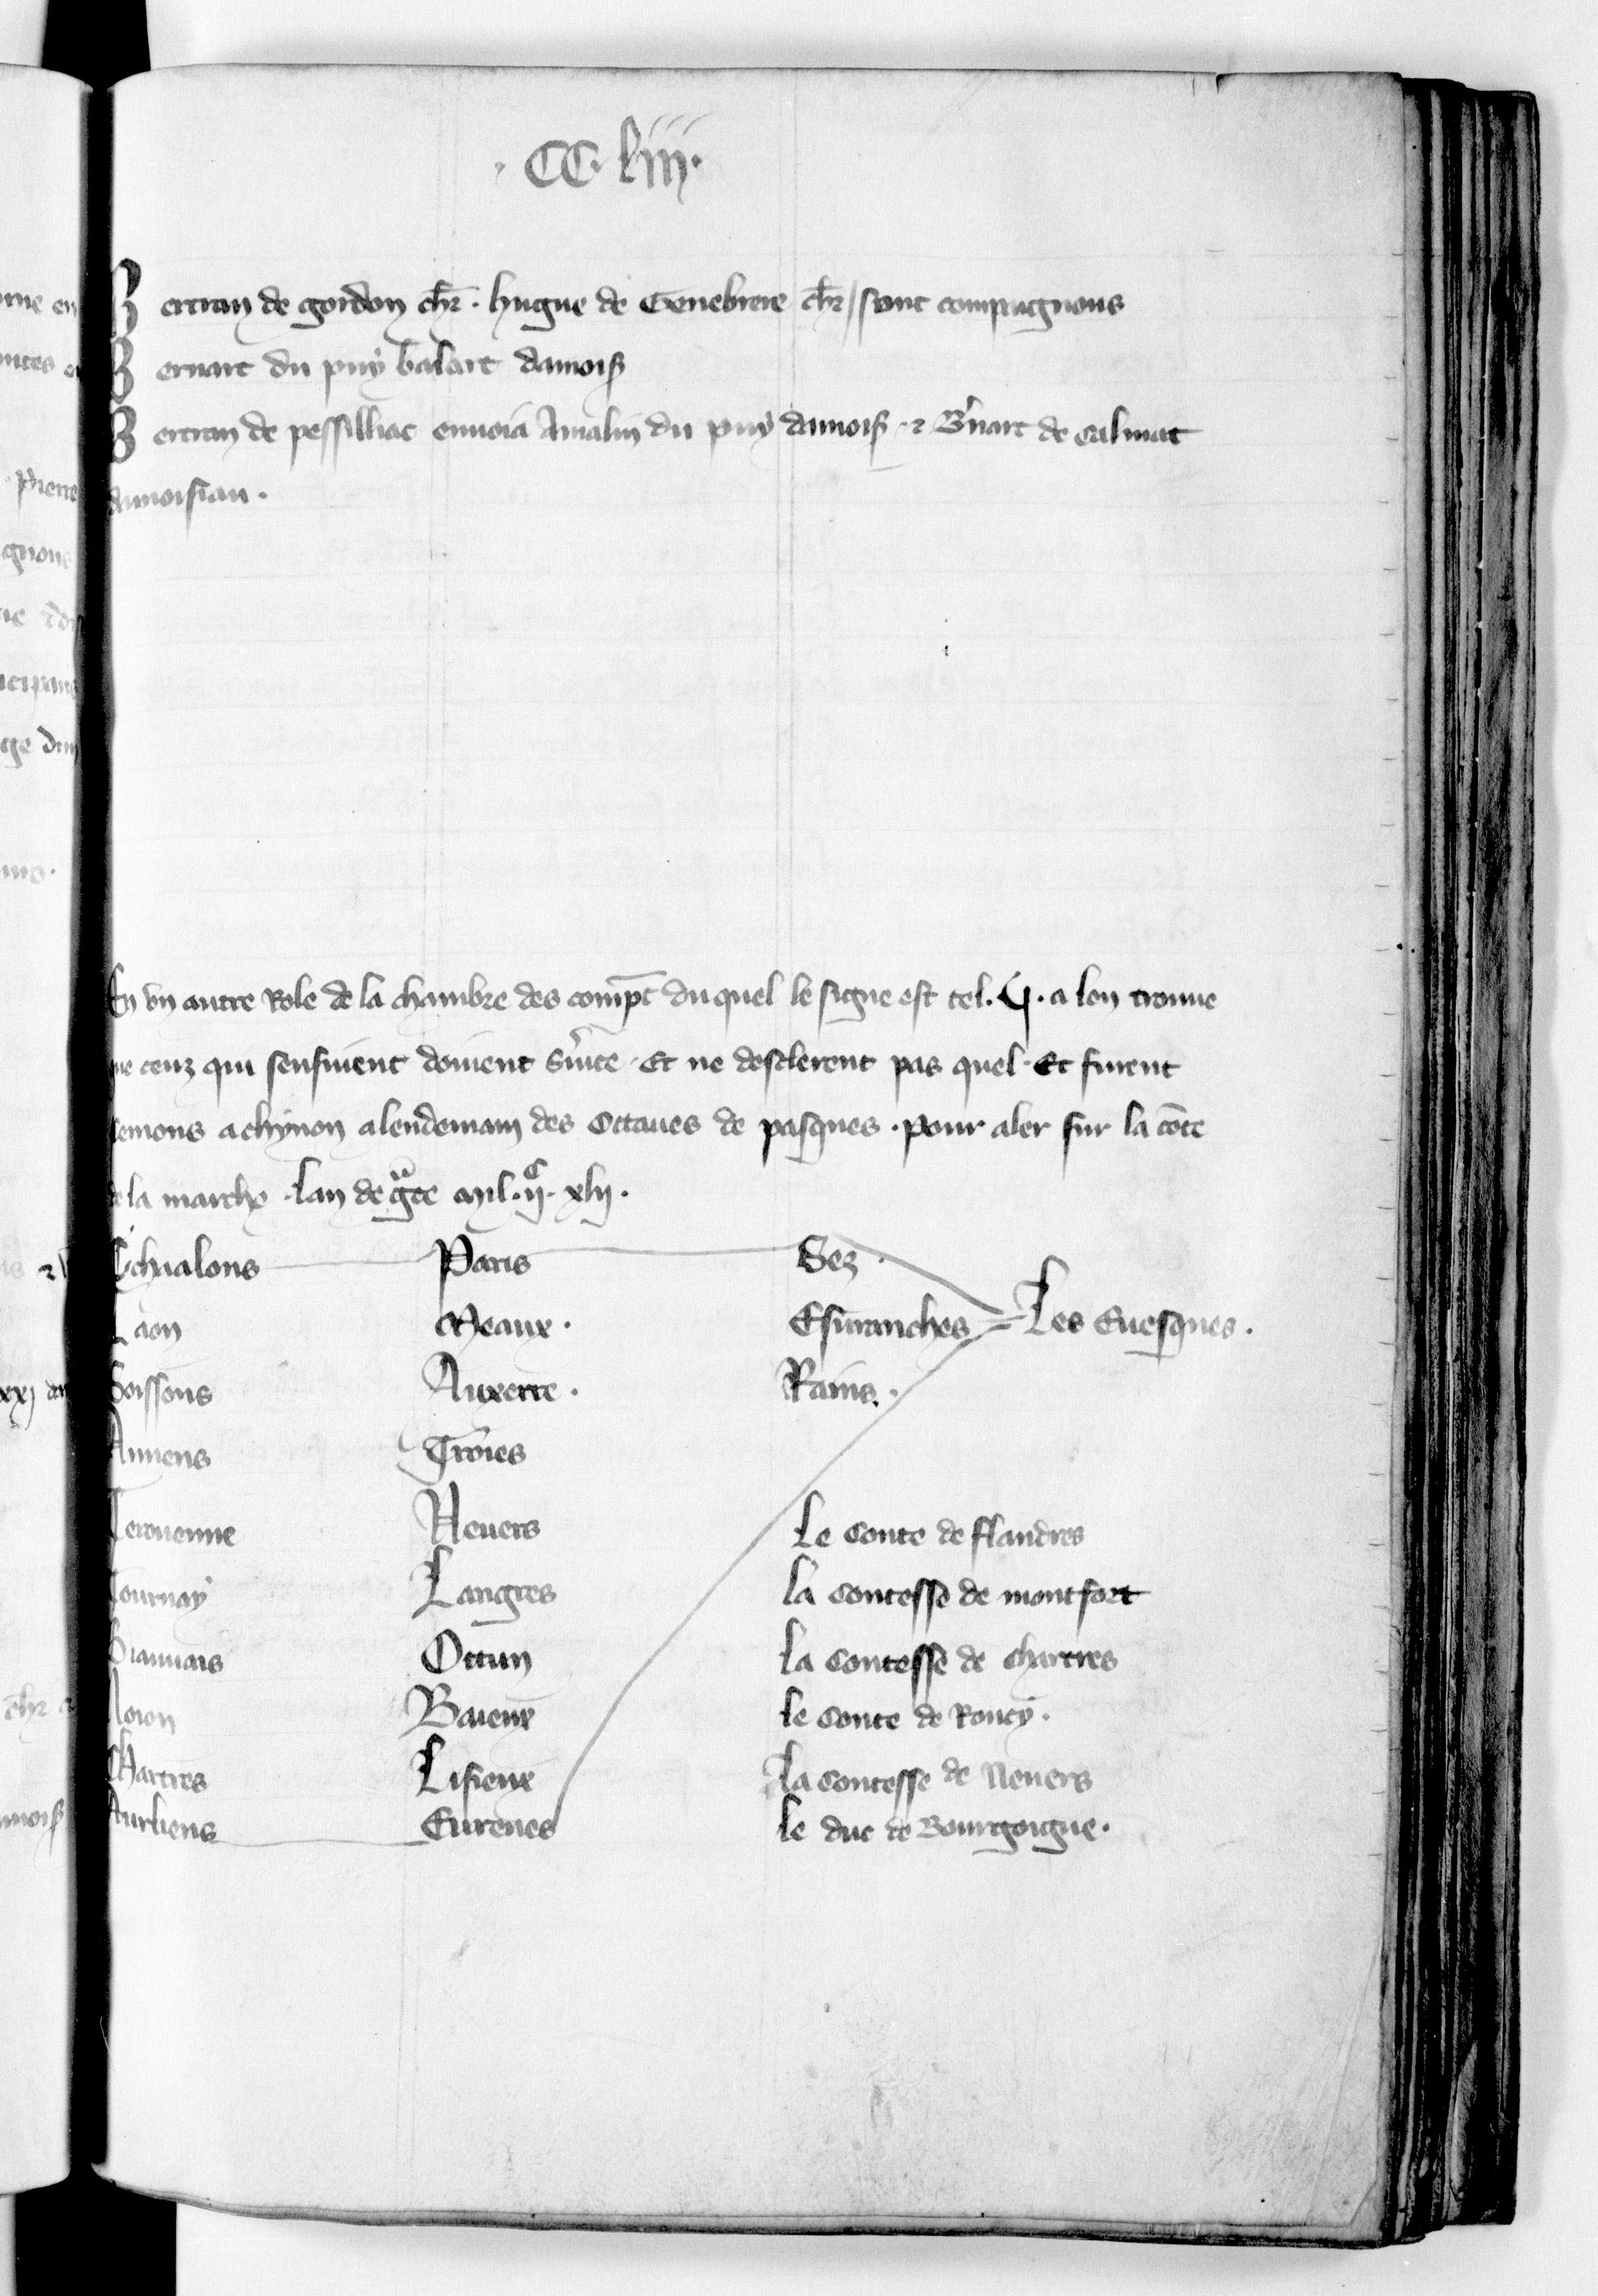 . CC. liii.
Bertran de gordon chr̅. hugue de Genebrere chr̅ / sont compaignons
Bernart du puy balart damois
Bertran de pessilliac enuoia Amalin du puy damois. ⁊ B'nart de calmat
damoisiau.
En vn autre Role de la chambre des compt̅ du quel le signe est tel. G. a lon trouue
que ceuz qui sensiuent doiuent s'uice. Et ne desclerent pas quel. Et furent
semons a chynon a lendemain des Ottaues de pasques. pour aler sur la c̅ote
de la marche. lan de gͣce mil. ii.ᶜ xlii.
Chaalons Paris Sez.
Laon Meaux. Esuranches = Les Euesques.
Soissons Auxerre. Rains.
Amiens Troies
Terouenne Neuers Le Conte de flandres
Tournay Langres la Contesse de montfort
Biauuais Ottun la Contesse de chartres
Noion Baieux le Conte de Roucy.
Chartres Lisieux la Contesse de Neuers
Aurliens Eureues le duc de Bourgoigne.